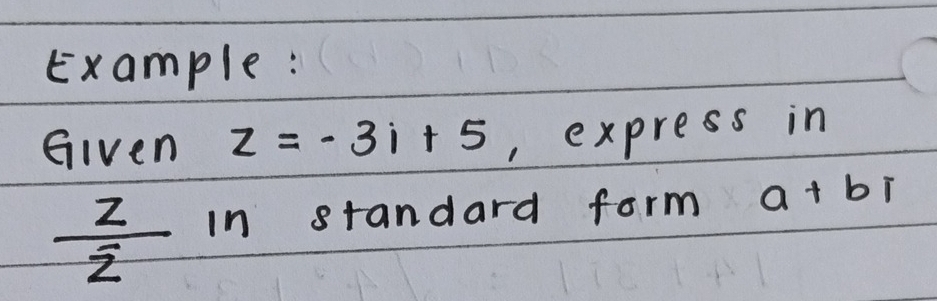 Example :
Given z = - 3i + 5, express in
z/z̄ in standard form a + bi